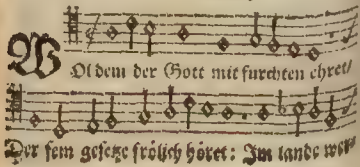 WOldem der Gott mit furchten ehret/
Der sein gesetze frölich höret: Im lande